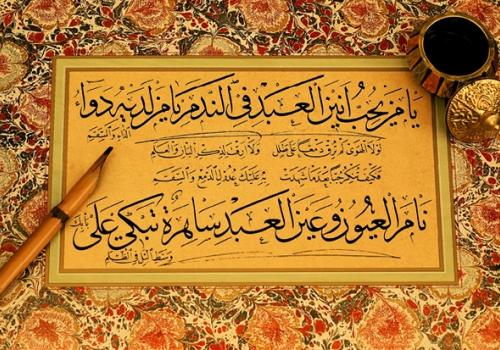 يا من يحب انين العبد في الندم يا من لديه دواء
الداء والسقم
لولا الهوى لم ترق دمعا على طلل ولا ارقت لذكر البان والعلم
فكيف تنكر حبا بعدما شهدت به عليك عدول الدمع والسقم
نام العيون وعين العبد ساهرة تبكي على
وسط الليل في الظلم